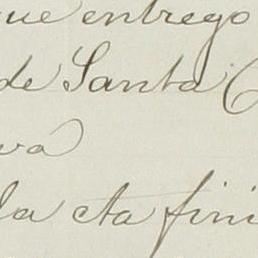 que entrego
de Santa C
va
la cta fini